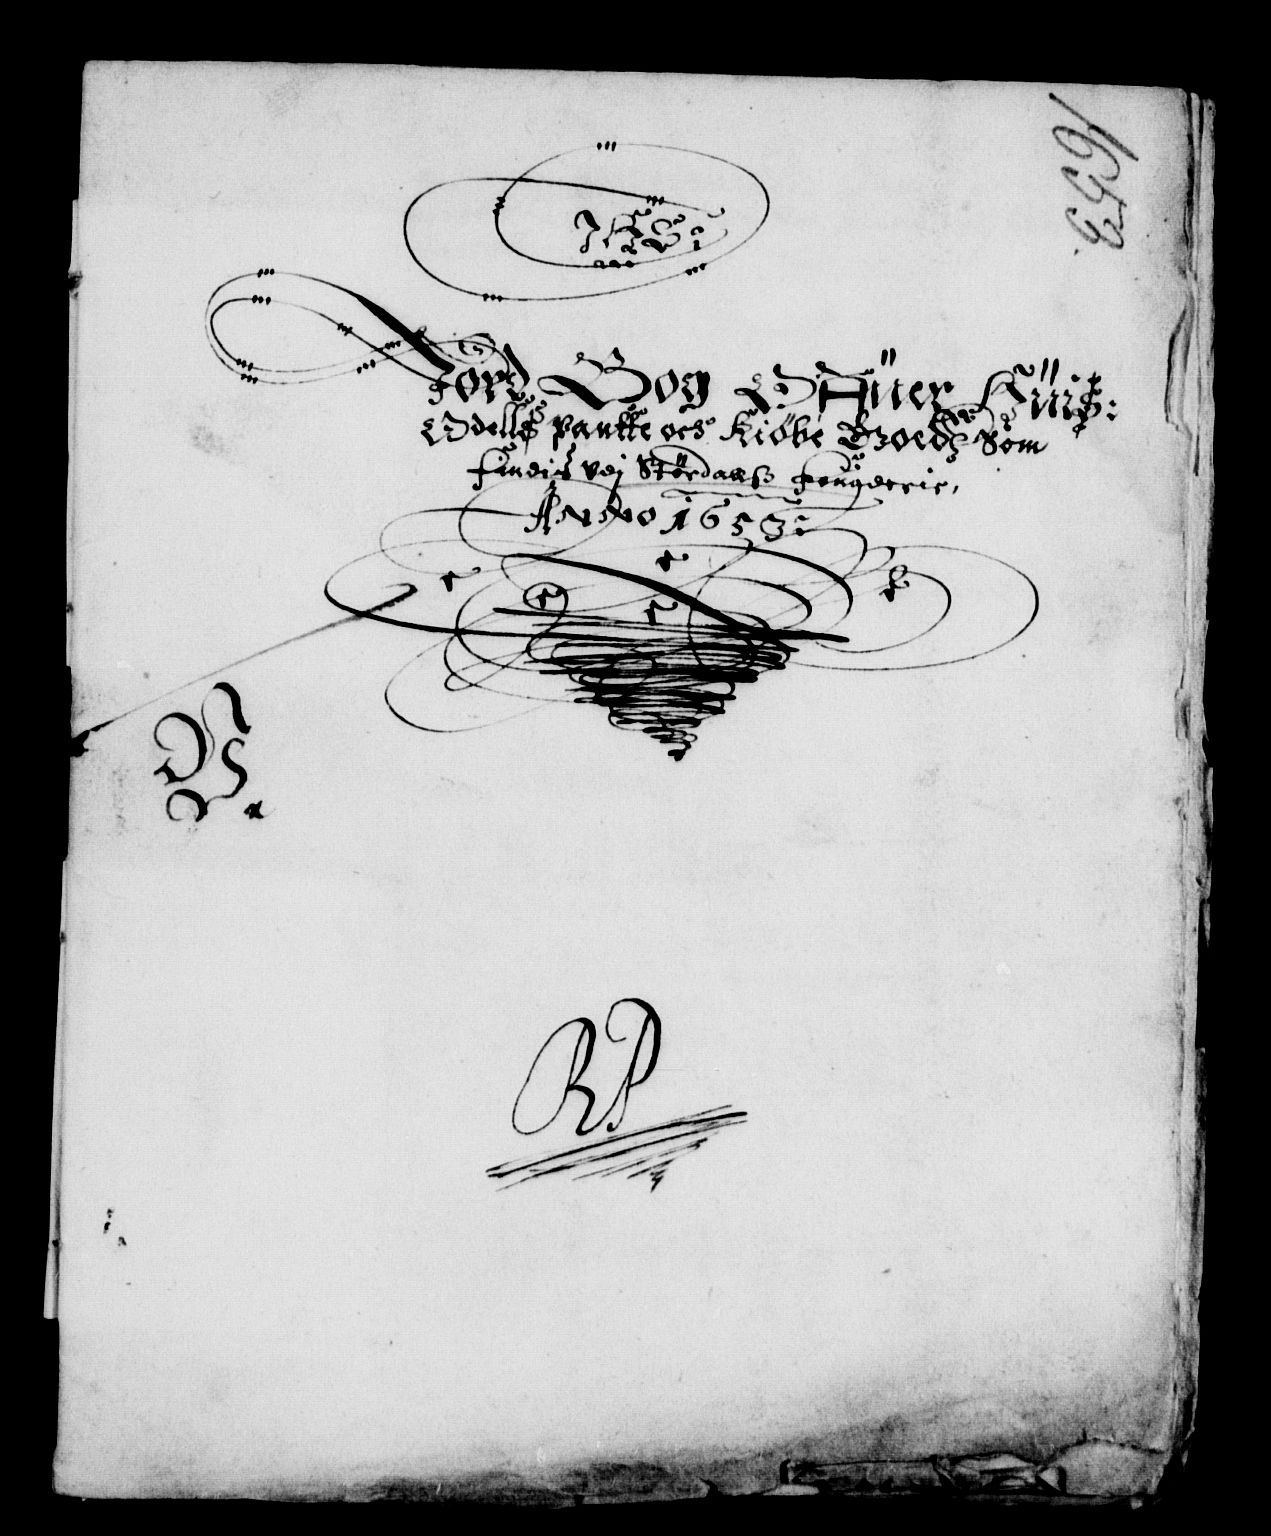 1653
1653:
Jord Bog Offuer Kruns:
Odells pantte och Kiøbe Goeds Som
findis vdj Størdalls fougderie,
Anno 1653:
RP